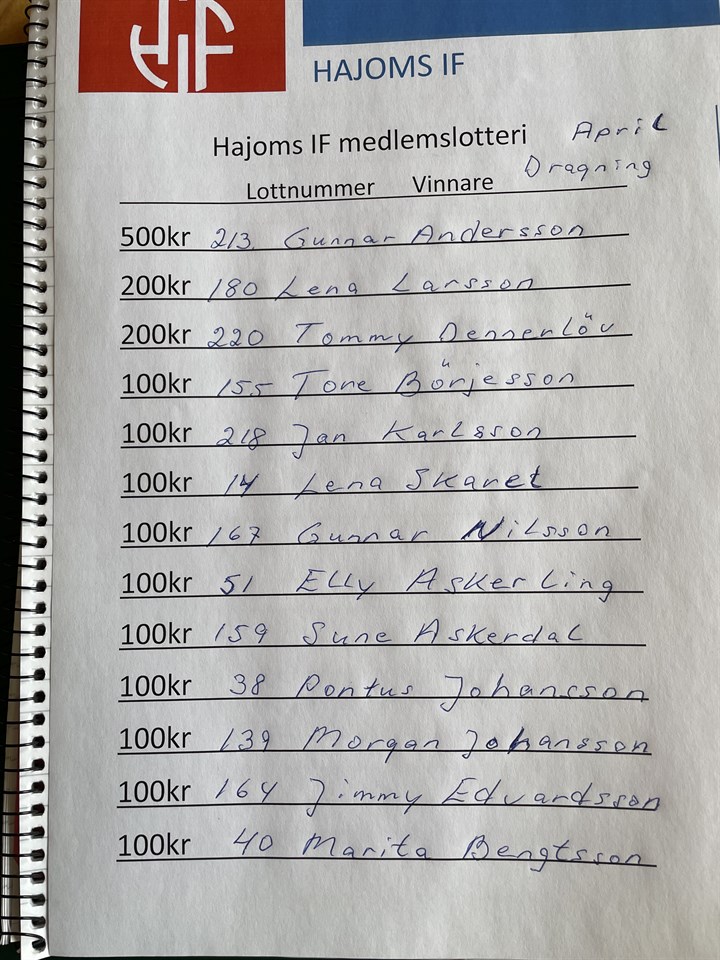 HIF
HAJOMS IF
Hajoms IF medlemslotteri April
Dragning
Lottnummer Vinnare
500kr 213. Gunnar Andersson
200kr 180 Lena Larsson
200kr 220 Tommy Dennerlöv
100kr 155 Tore Börjesson
100kr 218 Jan Karlsson
100kr 14 Lena Skaret
100kr 167 Gunnar Nilsson
100kr 51 Elly Askerling
100kr 159 Sune Askerdal
100kr 38 Pontus Johansson
100kr 139 Morgan Johansson
100kr 164 Jimmy Edvardsson
100kr 40 Marita Bengtsson